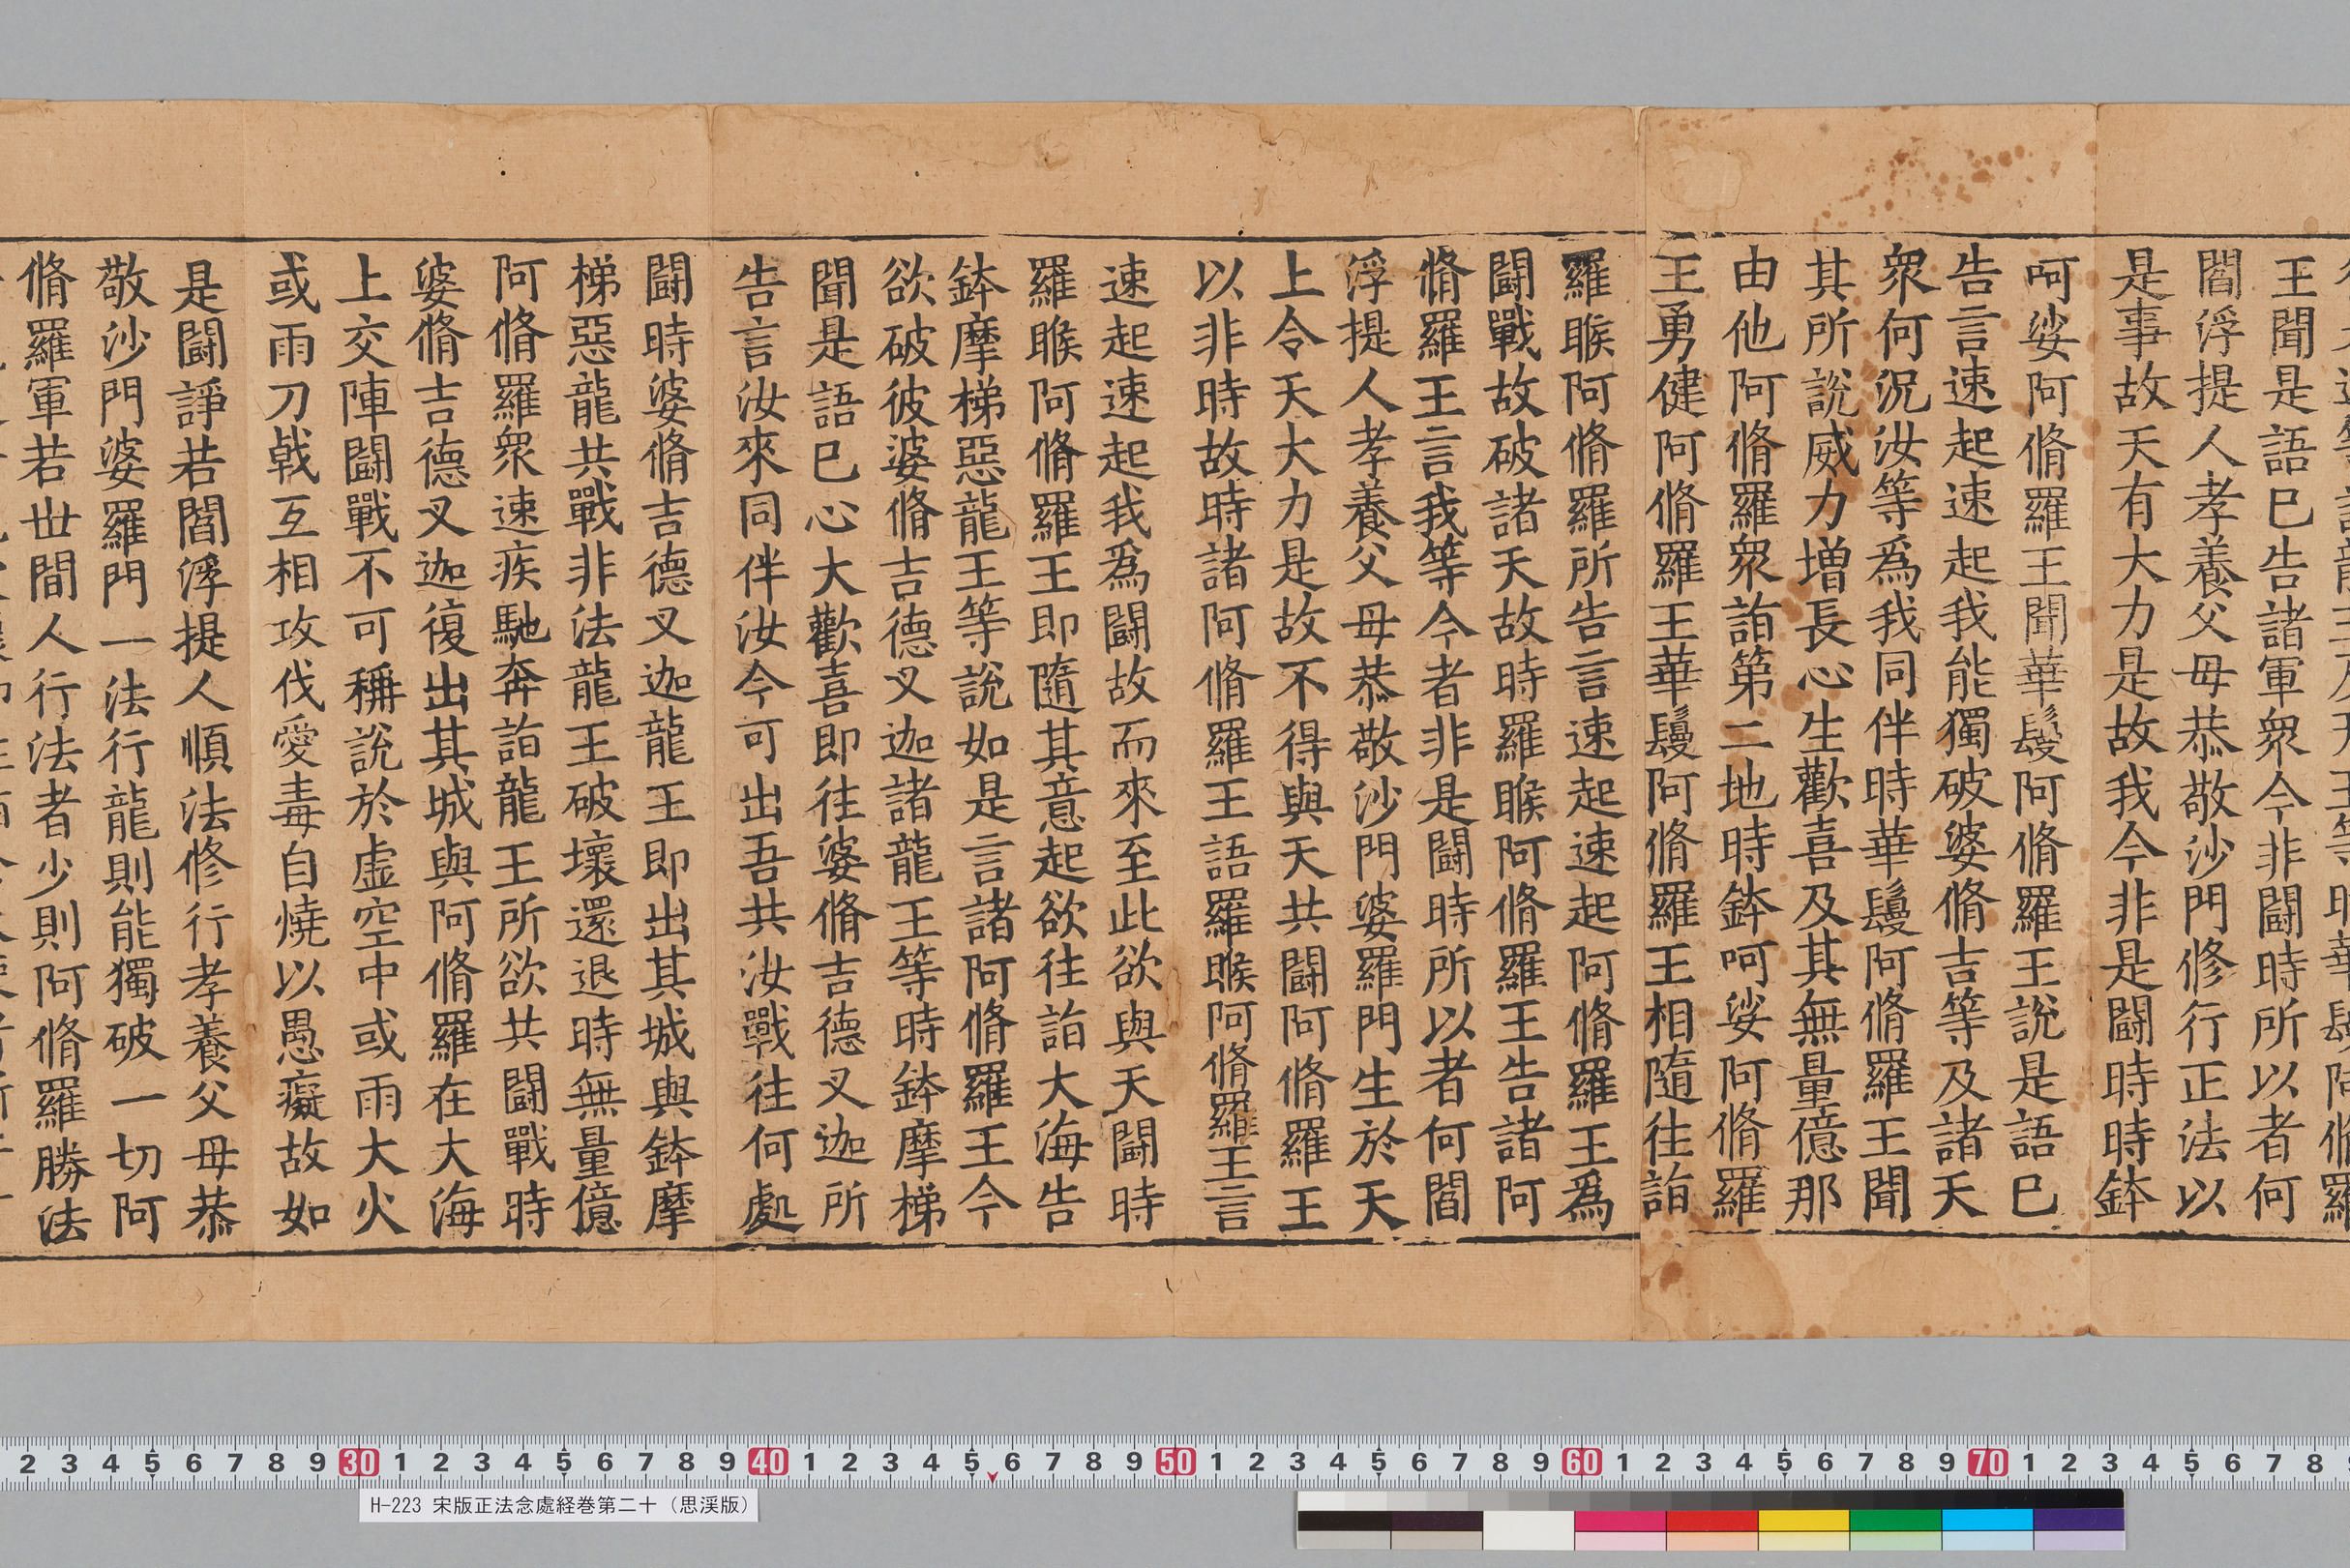 王聞是語已告諸軍衆今非鬪時所以者何
閻浮提人孝養父母恭敬沙門修行正法以
是事故天有大力是故我今非是鬪時時鉢
呵娑阿脩羅王聞華鬘阿脩羅王說是語已
告言速起速起我能獨破婆脩吉等及諸天
衆何況汝等爲我同伴時華鬘阿脩羅王聞
其所說威力增長心生歡喜及其無量億那
由他阿脩羅衆詣第二地時鉢呵娑阿脩羅
王勇健阿脩羅王華鬘阿脩羅王相隨往詣
羅睺阿脩羅所告言速起速起阿脩羅王爲
鬪戰故破諸天故時羅睺阿脩羅王告諸阿
脩羅王言我等今者非是鬪時所以者何閻
浮提人孝養父母恭敬沙門婆羅門生於天
上令天大力是故不得與天共鬪阿脩羅王
以非時故時諸阿脩羅王語羅睺阿脩羅王言
速起速起我爲鬪故而來至此欲與天鬪時
羅睺阿脩羅王即隨其意起欲往詣大海告
鉢摩梯惡龍王等說如是言諸阿脩羅王今
欲破彼婆脩吉德叉迦諸龍王等時鉢摩梯
聞是語已心大歡喜即往婆脩吉德叉迦所
告言汝來同伴汝今可出吾共汝戰往何處
鬪時婆脩吉德叉迦龍王即出其城與鉢摩
梯惡龍共戰非法龍王破壞還退時無量億
阿脩羅衆速疾馳奔詣龍王所欲共鬪戰時
婆脩吉德叉迦復出其城與阿脩羅在大海
上交陣鬪戰不可稱說於虛空中或雨大火
或雨刀戟互相攻伐愛毒自燒以愚癡故如
是鬪諍若閻浮提人順法修行孝養父母恭
敬沙門婆羅門一法行龍則能獨破一切阿
脩羅軍若世間人行法者少則阿脩羅勝法
2 3 4 5 6 7 8 9 30 1 2 3 4 5 6 7 8 9 40 1 2 3 4 5 6 7 8 9 50 1 2 3 4 5 6 7 8 9 60 1 2 3 4 5 6 7 8 9 70 1 2 3 4 5 6 7 8
H-223 宋版正法念處経巻第二十（思渓版）